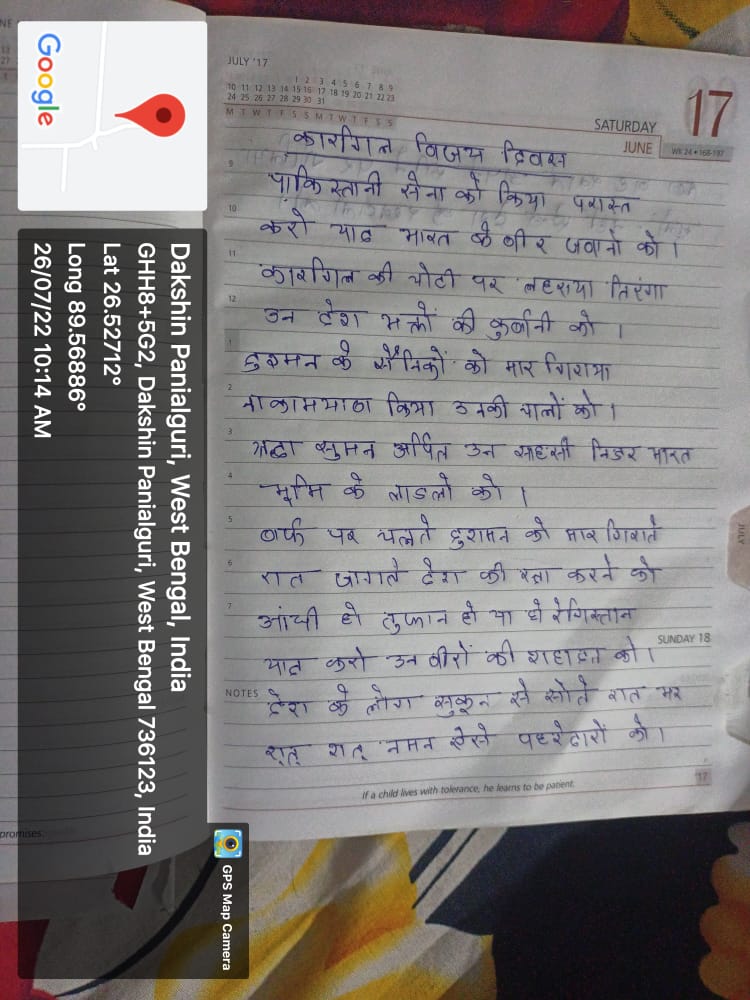 JULY '17
1 2 3 4 5 6 7 8 9
10 11 12 13 14 15 16 17 18 19 20 21 22 23
24 25 26 27 28 29 30 31
M T W T F S S M T W T F S S
SATURDAY
JUNE
17
WK 24 • 168-197
कारगिल विजय दिवस
9 पाकिस्तानी सेना को किया परास्त
10 करो याद भारत के वीर जवानो को।
11 कारगिल की चोटी पर लहराया तिरंगा
12 उन देश भक्तों की कुर्बानी को।
1 दुश्मन के सैनिकों को मार गिराया
2 नाकामयाब किया उनकी चालों को।
3 श्रद्धा सुमन अर्पित उन साहसी निडर भारत
4 भूमि के लाडलो को।
5 बर्फ पर चलते दुशमन को मार गिराते
6 रात जागते देश की रक्षा करने को
7 आंधी हो तुफान हो या हो रेगिस्तान
SUNDAY 18
याद करो उन वीरों की शहादत को।
NOTES देश के लोग सुकून से सोते रात भर
शत् शत् नमन ऐसे पहरेदारों को।
If a child lives with tolerance, he learns to be patient.
'17
JULY
promises.
Google
Dakshin Panialguri, West Bengal, India
GHH8+5G2, Dakshin Panialguri, West Bengal 736123, India
Lat 26.52712°
Long 89.56886°
26/07/22 10:14 AM
GPS Map Camera